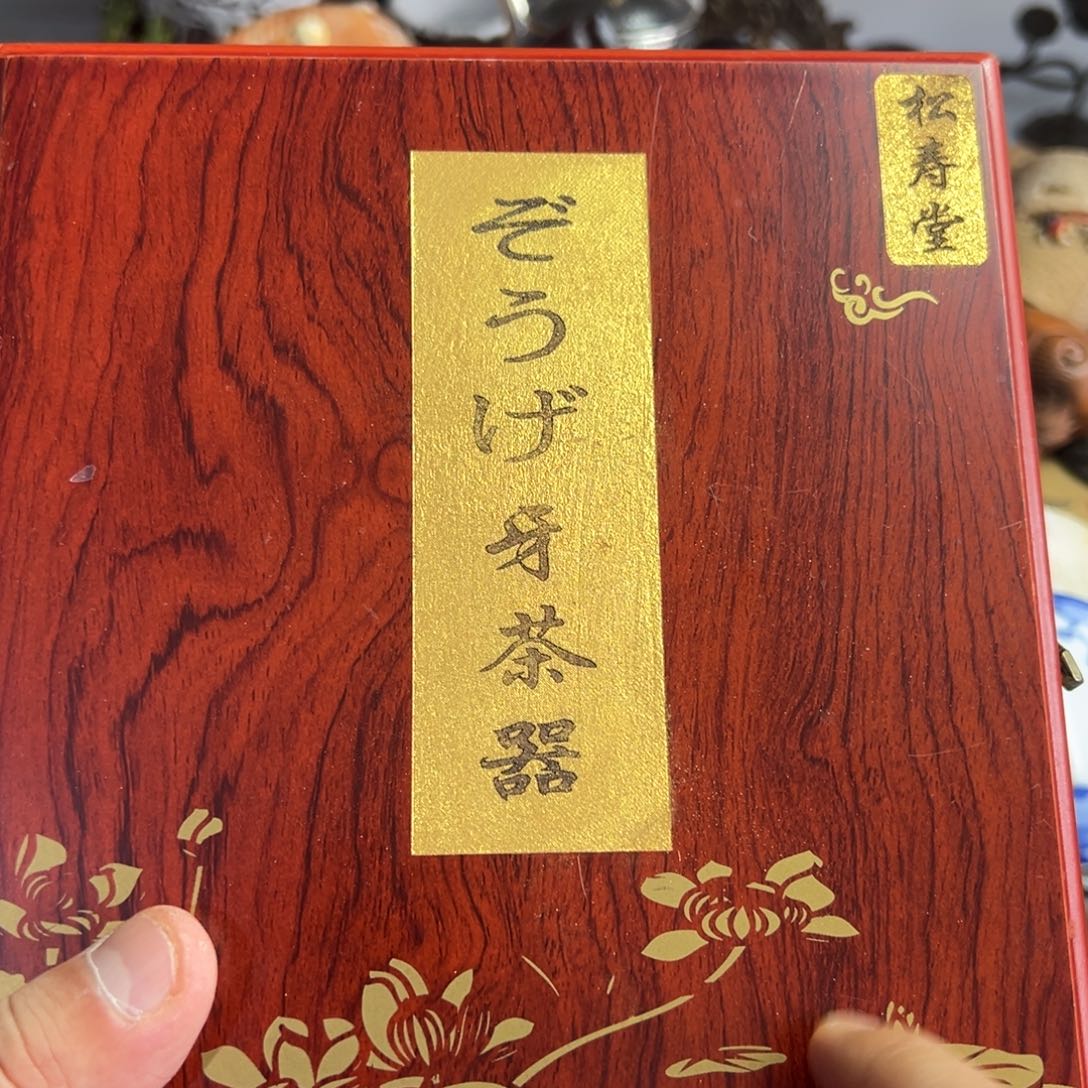 松寿堂
ぞうげ牙茶器